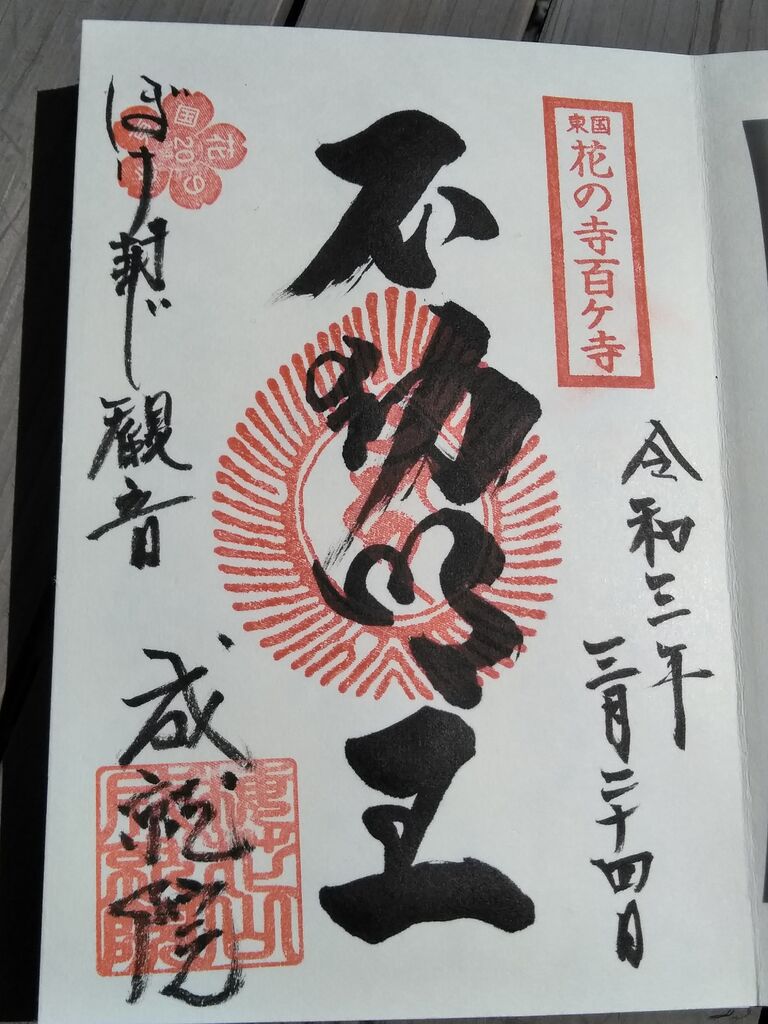 東国
花の寺百ケ寺
令和三年
三月二十四日
不動明王
ぼけ封じ観音
成就院